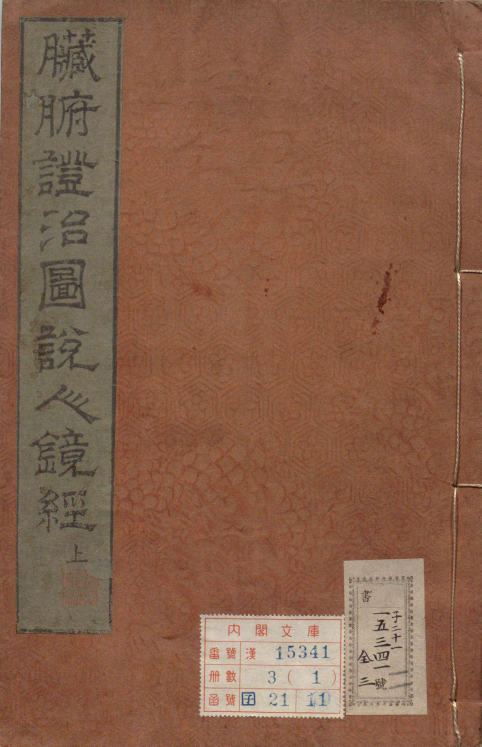 臟腑證治圖說人鏡經 上
書
子二十一
一五三四一號
全三
內閣文庫
番號 漢 15341
冊數 3(1)
函號 子 21 11